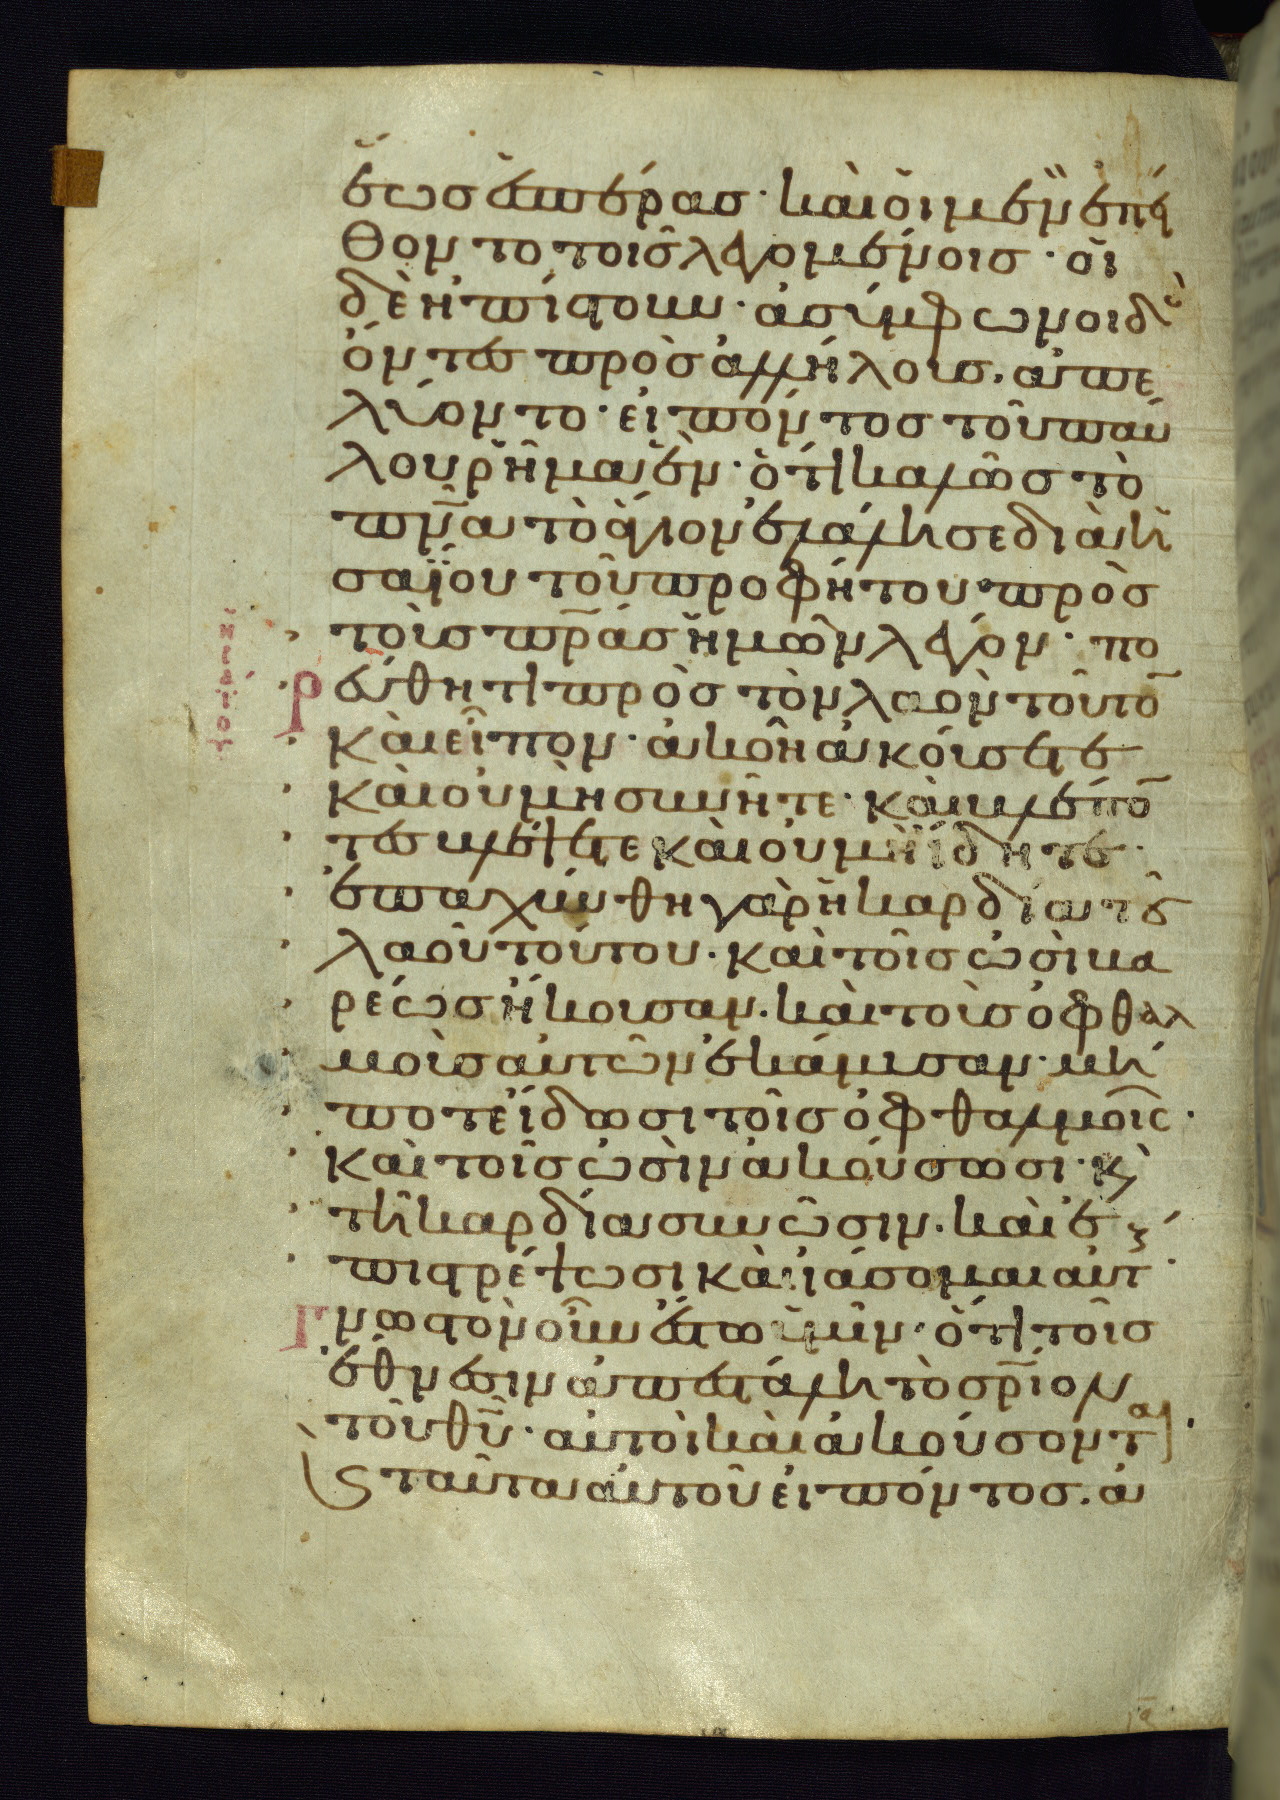 ἕως ἑσπέρας· καὶ οἱ μὲν ἐπεί
θοντο τοῖς λεγομένοις· οἱ
δὲ ἠπίστουν· ἀσύμφωνοι δὲ
ὄντες πρὸς ἀλλήλους, ἀπε
λύοντο· εἰπόντος τοῦ παύ
λου ῥῆμα ἕν· ὅτι καλῶς τὸ
πν̅α τὸ ἅγιον ἐλάλησε διὰ ἡ
σαΐου τοῦ προφήτου πρὸς
τοὺς πρ̅ας ἡμῶν λέγον· πο
ρεύθητι πρὸς τὸν λαὸν τοῦτο̅
καὶ εἶπον· ἀκοῇ ἀκούσετε
καὶ οὐ μὴ συνῆτε· καὶ βλέπο̅
τες βλέψετε καὶ οὐ μὴ ἴδητε·
ἐπαχύνθη γὰρ ἡ καρδία τοῦ
λαοῦ τούτου· καὶ τοῖς ὠσὶ βα
ρέως ἤκουσαν· καὶ τοὺς ὀφθαλ
μοὺς αὐτῶν ἐκάμμυσαν· μή
ποτε ἴδωσι τοῖς ὀφθαλμοῖς·
καὶ τοῖς ὠσὶν ἀκούσωσι· κ̀
τῇ καρδίᾳ συνῶσιν· καὶ ἐ
πιστρέψωσι καὶ ἰάσομαι αὐτ
Γνωστὸν οὖν ἔστω ὑμῖν· ὅτι τοῖς
ἔθνεσιν ἀπεστάλη τὸ σρ̅ιον
τοῦ θυ̅· αὐτοὶ καὶ ἀκούσονται·
ς ταῦτα αὐτοῦ εἰπόντος· ἀ